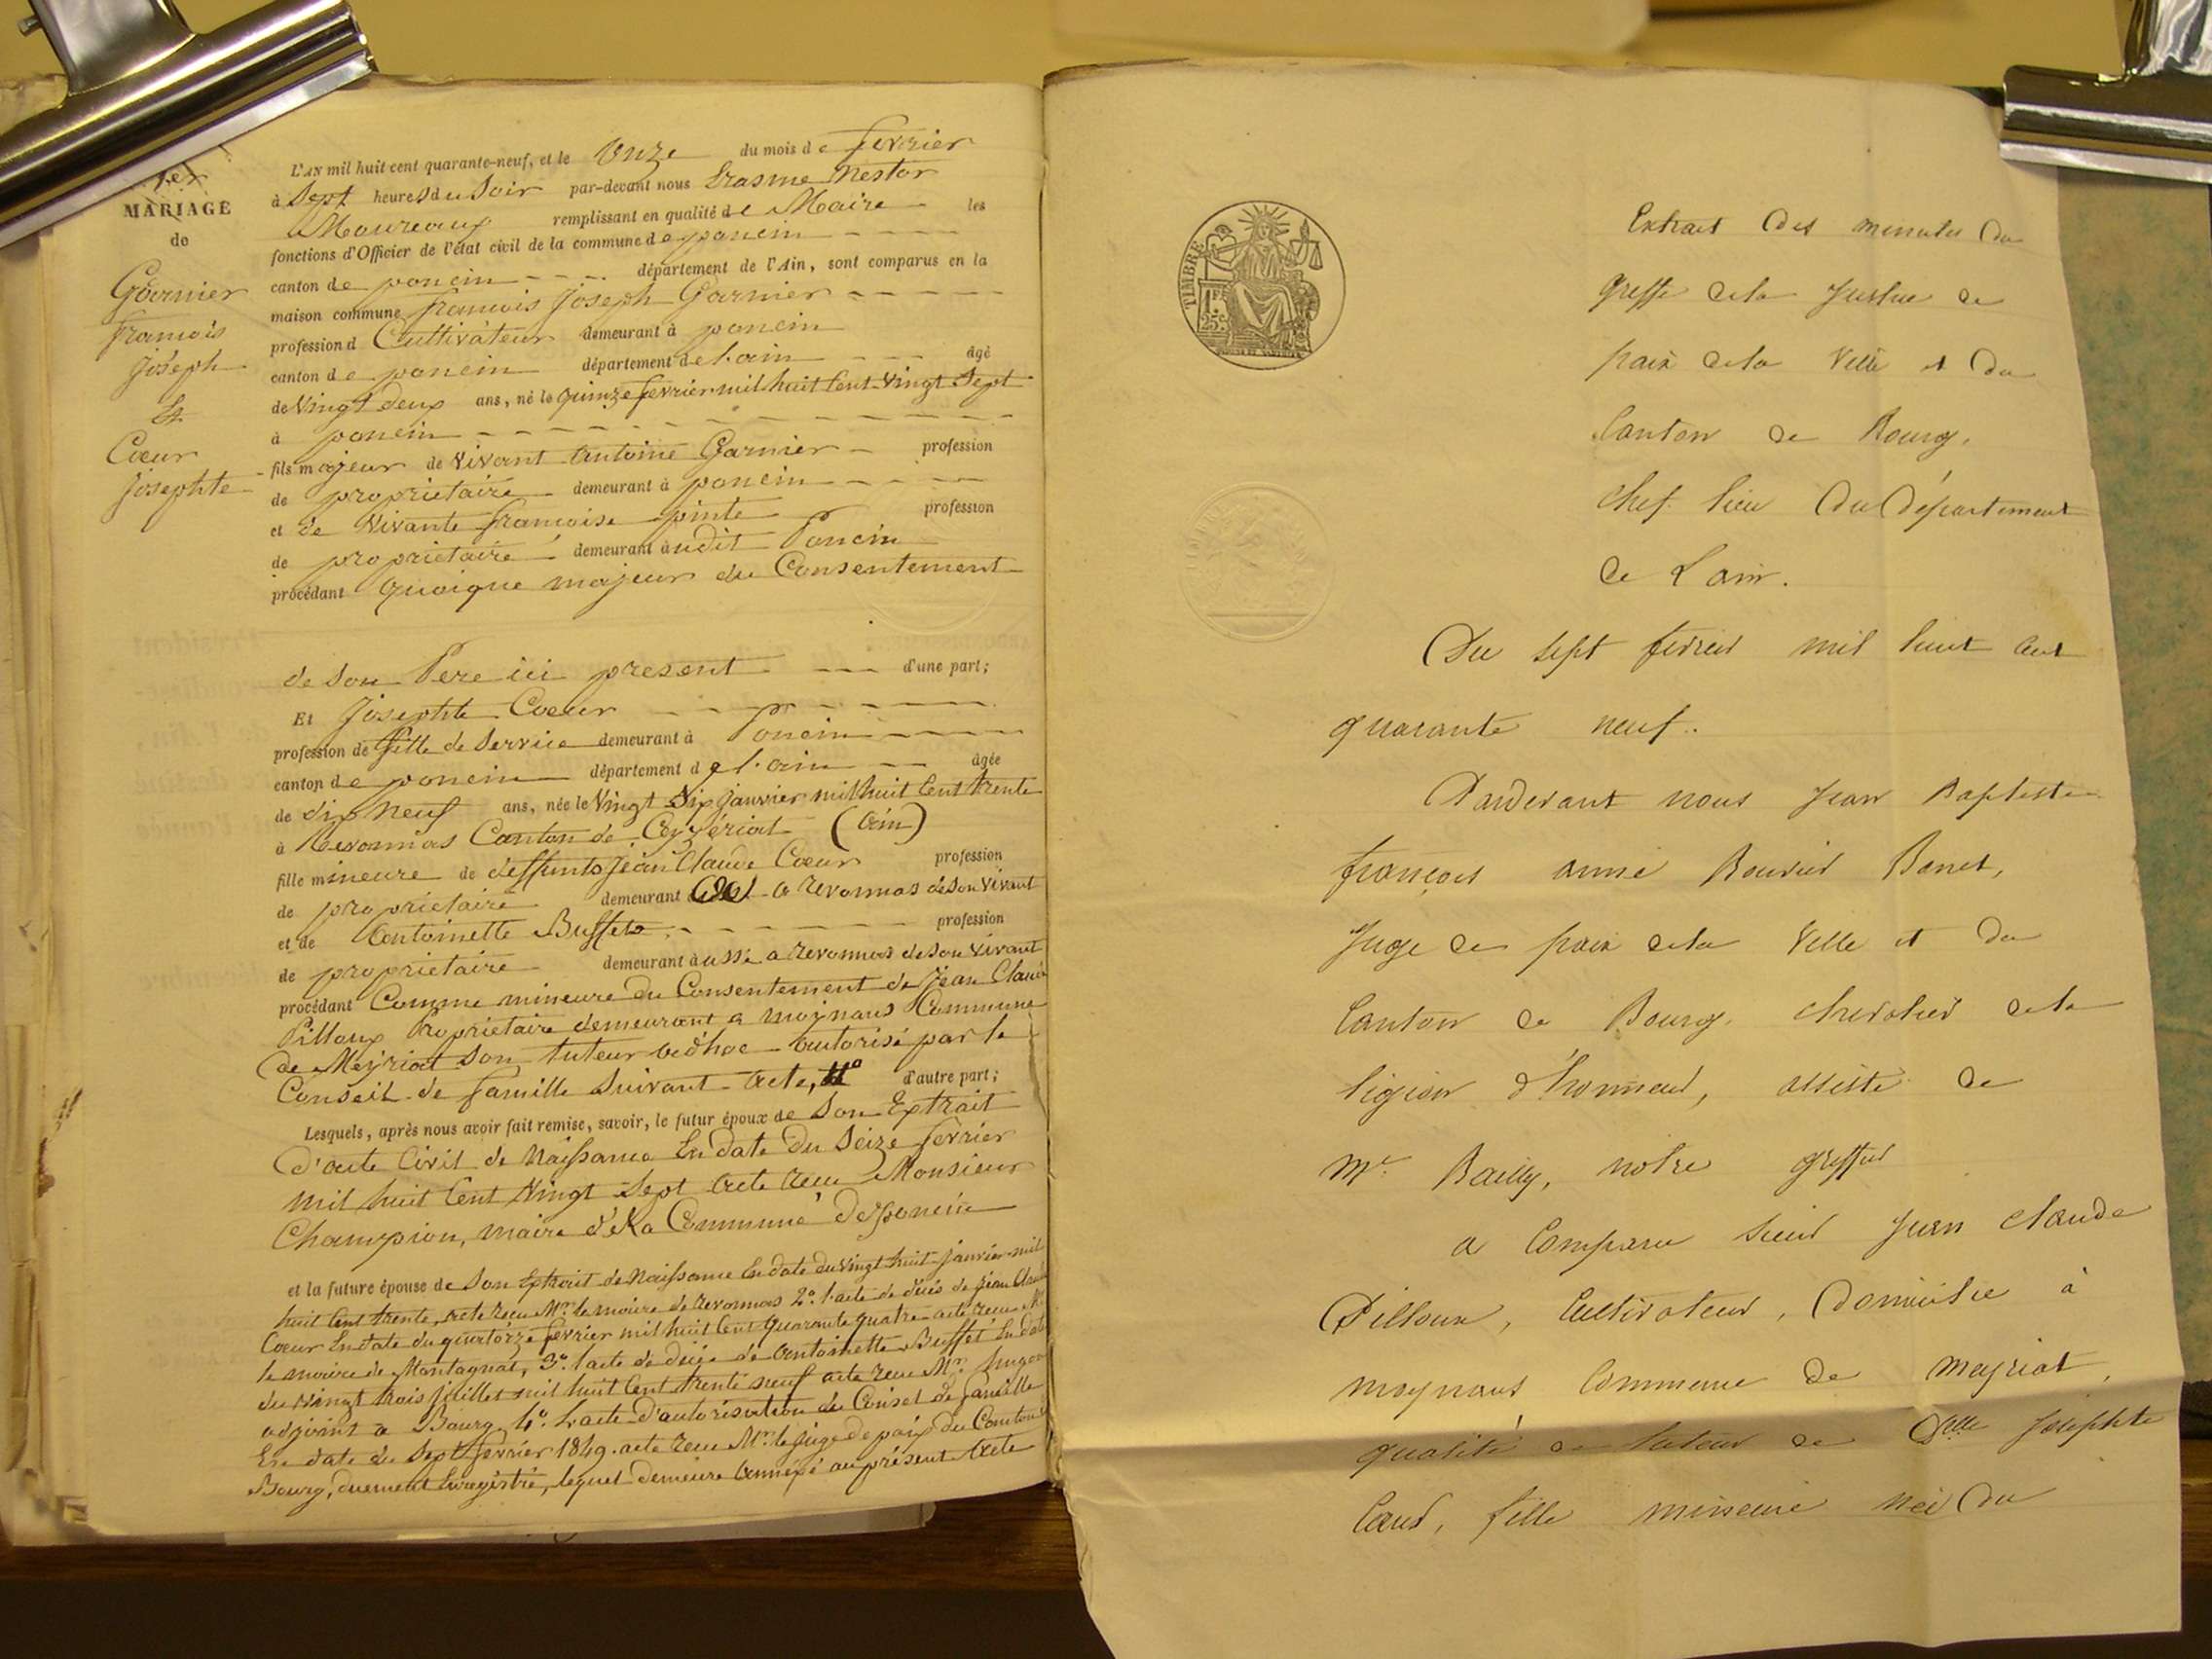 1er
MARIAGE
de
Garnier
francois
Joseph
Et
Cœur
Josephte
L'AN mil huit cent quarante-neuf, et le Onze du mois de fevrier
à Sept heures du Soir par-devant nous Erasme Nestor
Moureaux remplissant en qualité de Maire les
fonctions d'Officier de l'état civil de la commune de poncin
canton de poncin département de l'Ain, sont comparus en la
maison commune francois Joseph Garnier
profession d Cultivateur demeurant à poncin
canton de poncin département de l'ain âgé
de Vingt deux ans, né le quinze fevrier mil huit Cent Vingt Sept
à poncin
fils majeur de Vivant Antoine Garnier profession
de proprietaire demeurant à poncin
et de Vivante francoise pinte profession
de proprietaire demeurant audit Poncin
procédant quoique majeur du Consentement
de son Pere ici present d'une part;
Et Josephte Cœur
profession de fille de Service demeurant à Poncin
canton de poncin département de l'ain âgée
de dix neuf ans, née le Vingt Six janvier mil huit Cent trente
à Revonnas Canton de Ceyzériat (Ain)
fille mineure de deffunts Jean Claude Cœur profession
de proprietaire demeurant a revonnas de son vivant
et de Antoinette Buffet profession
de proprietaire demeurant à ussi a revonnas de son vivant
procédant Comme mineure du Consentement de Jean Claude
Pilloux Proprietaire demeurant a moynans Commune
de Meyriat son tuteur adhoc autorisé par le
Conseil de famille Suivant acte, d'autre part;
Lesquels, après nous avoir fait remise, savoir, le futur époux de Son Extrait
D'acte Civil de Naissance En date du Seize fevrier
mil huit Cent Vingt Sept acte recu Monsieur
Champion, maire de la Commune de poncin
et la future épouse de Son Extrait de Naissance En date du vingt huit janvier mil
huit Cent trente, acte recu Mr le maire de revonnas 2º l'acte de décés de jean Claude
Cœur En date du quatorze fevrier mil huit Cent quarante quatre acte recu Mr
le maire de Montagnat, 3º l'acte de décés de Antoinette Buffet En date
du vingt trois juillet mil huit Cent trente neuf acte recu Mr
adjoint a Bourg 4º L'acte D'autorisation du Conseil de famille
En date du Sept fevrier 1849. acte recu Mr le juge de paix du Canton de
Bourg, duement Enregistré, lequel demeure annéxé au présent Acte
TIMBRE
1 F
25 c.
Extrait des minutes du
Greffe de la Justice de
paix de la Ville et du
Canton de Bourg,
chef lieu du Département
de L'ain.
Du sept fevrier mil huit cent
quarante neuf.
Pardevant nous Jean Baptiste
françois aimé Bouvier Bonet,
Juge de paix de la Ville et du
Canton de Bourg, chevalier de la
légion d'honneur, assisté de
Me Bailly, notre greffier
a Comparu sieur Jean Claude
Pilloux, Cultivateur, Domicilié à
moynans Commune de meyriat,
qualité de tuteur de Delle Josephte
Cœur, fille mineure née du